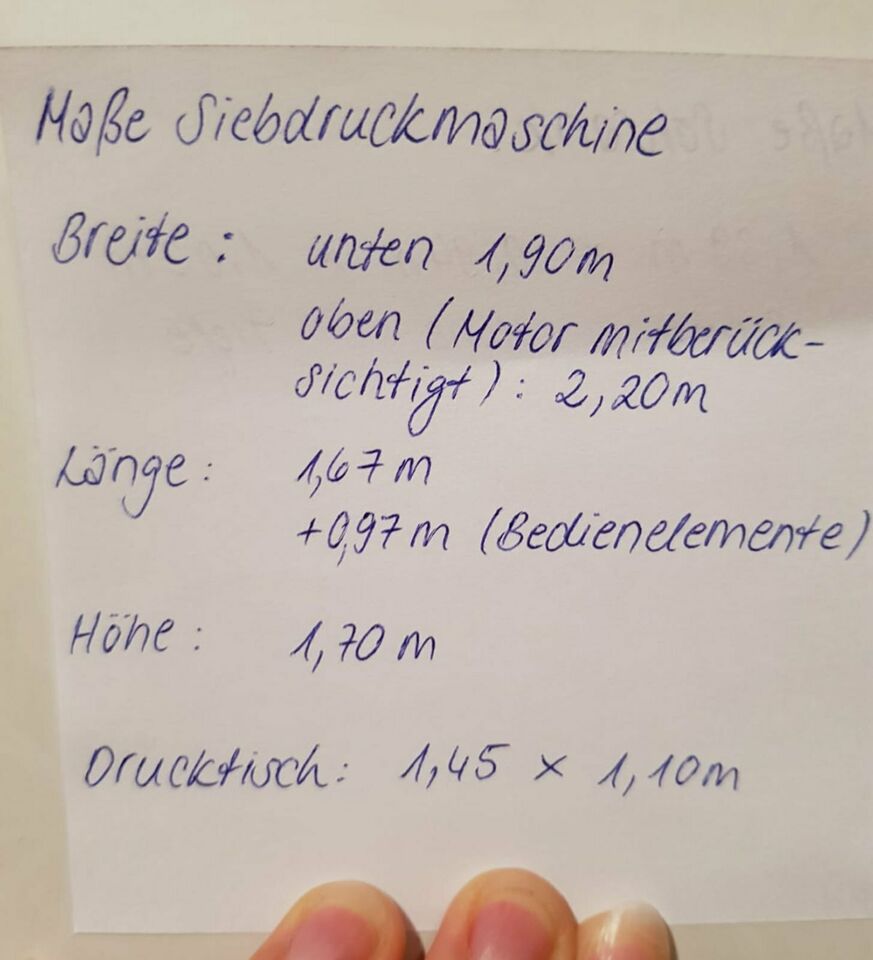 Maße Siebdruckmaschine
Breite: unten 1,90m
oben (Motor mitberück-
sichtigt): 2,20m
Länge: 1,67m
+0,97m (Bedienelemente)
Höhe: 1,70m
Drucktisch: 1,45 x 1,10m